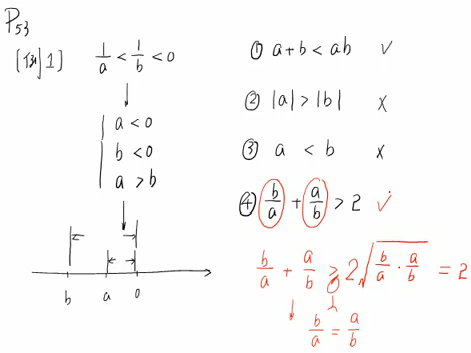 P53
[例1] 1/a < 1/b < 0
a < 0
b < 0
a > b
b a 0
① a + b < ab ✓
② |a| > |b| ×
③ a < b ×
④ b/a + a/b > 2 ✓
b/a + a/b ≥ 2√(b/a · a/b) = 2
b/a = a/b